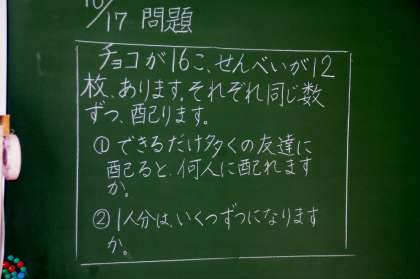 10/17 問題
チョコが16こ、せんべいが12
枚、あります。それぞれ同じ数
ずつ、配ります。
① できるだけ多くの友達に
配ると、何人に配れます
か。
② 1人分は、いくつずつになります
か。